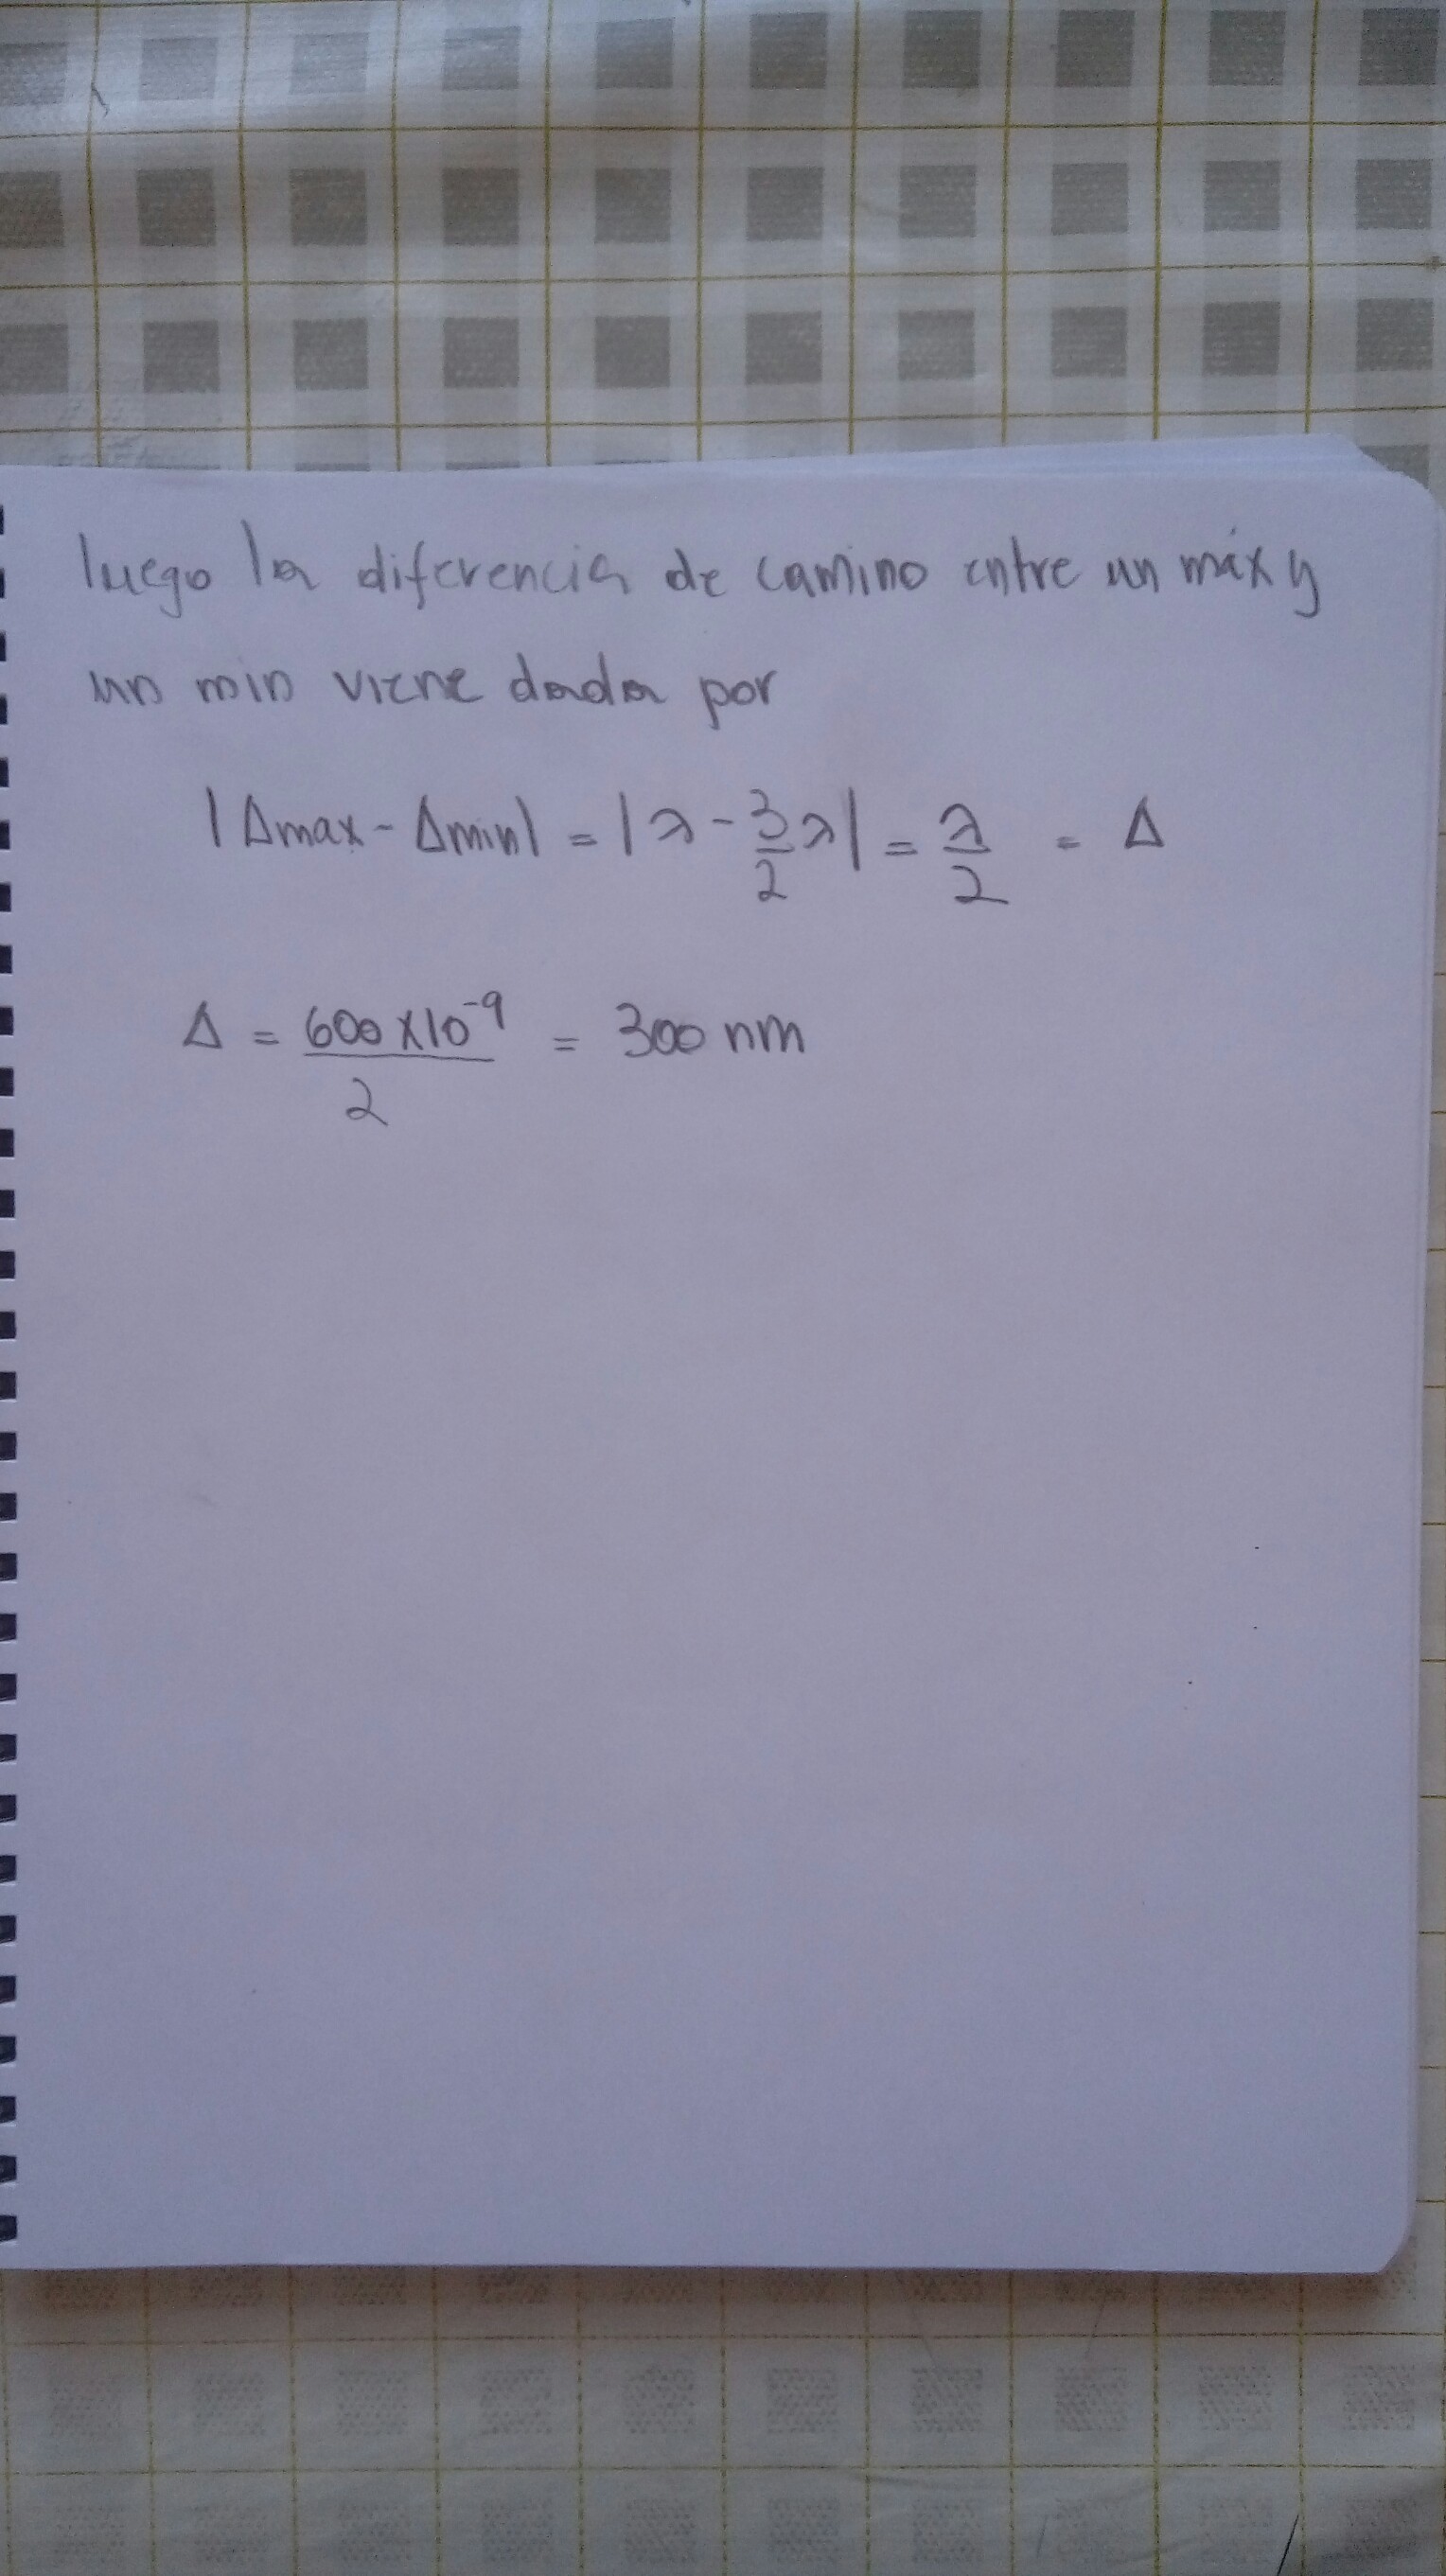 luego la diferencia de camino entre un máx y
un min viene dada por
|Δmax - Δmin| = |λ - 3/2 λ| = λ/2 = Δ
Δ = 600 x 10⁻⁹ / 2 = 300 nm